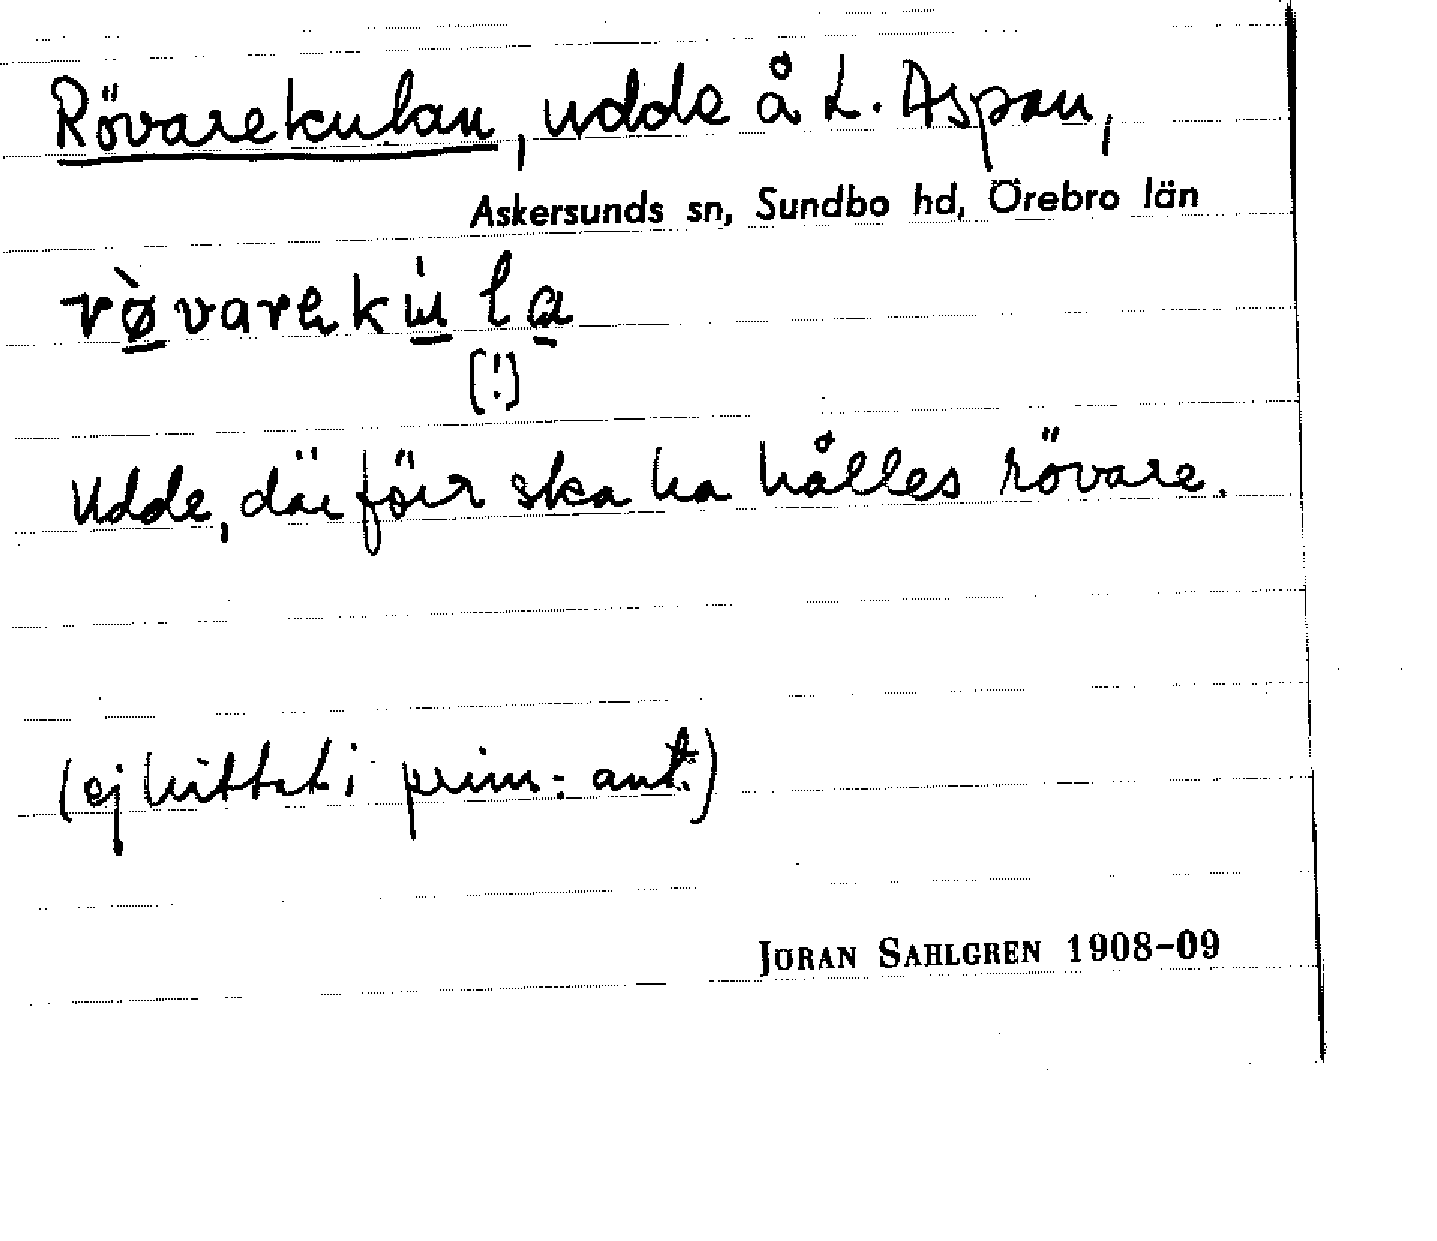 Rövarekulan, udde å L. Aspan,
Askersunds sn, Sundbo hd, Örebro län
rø̀varekula
(!)
Udde, där förr ska ha hålles rövare.
(ej hittat i prim: ant.)
JÖRAN SAHLGREN 1908-09